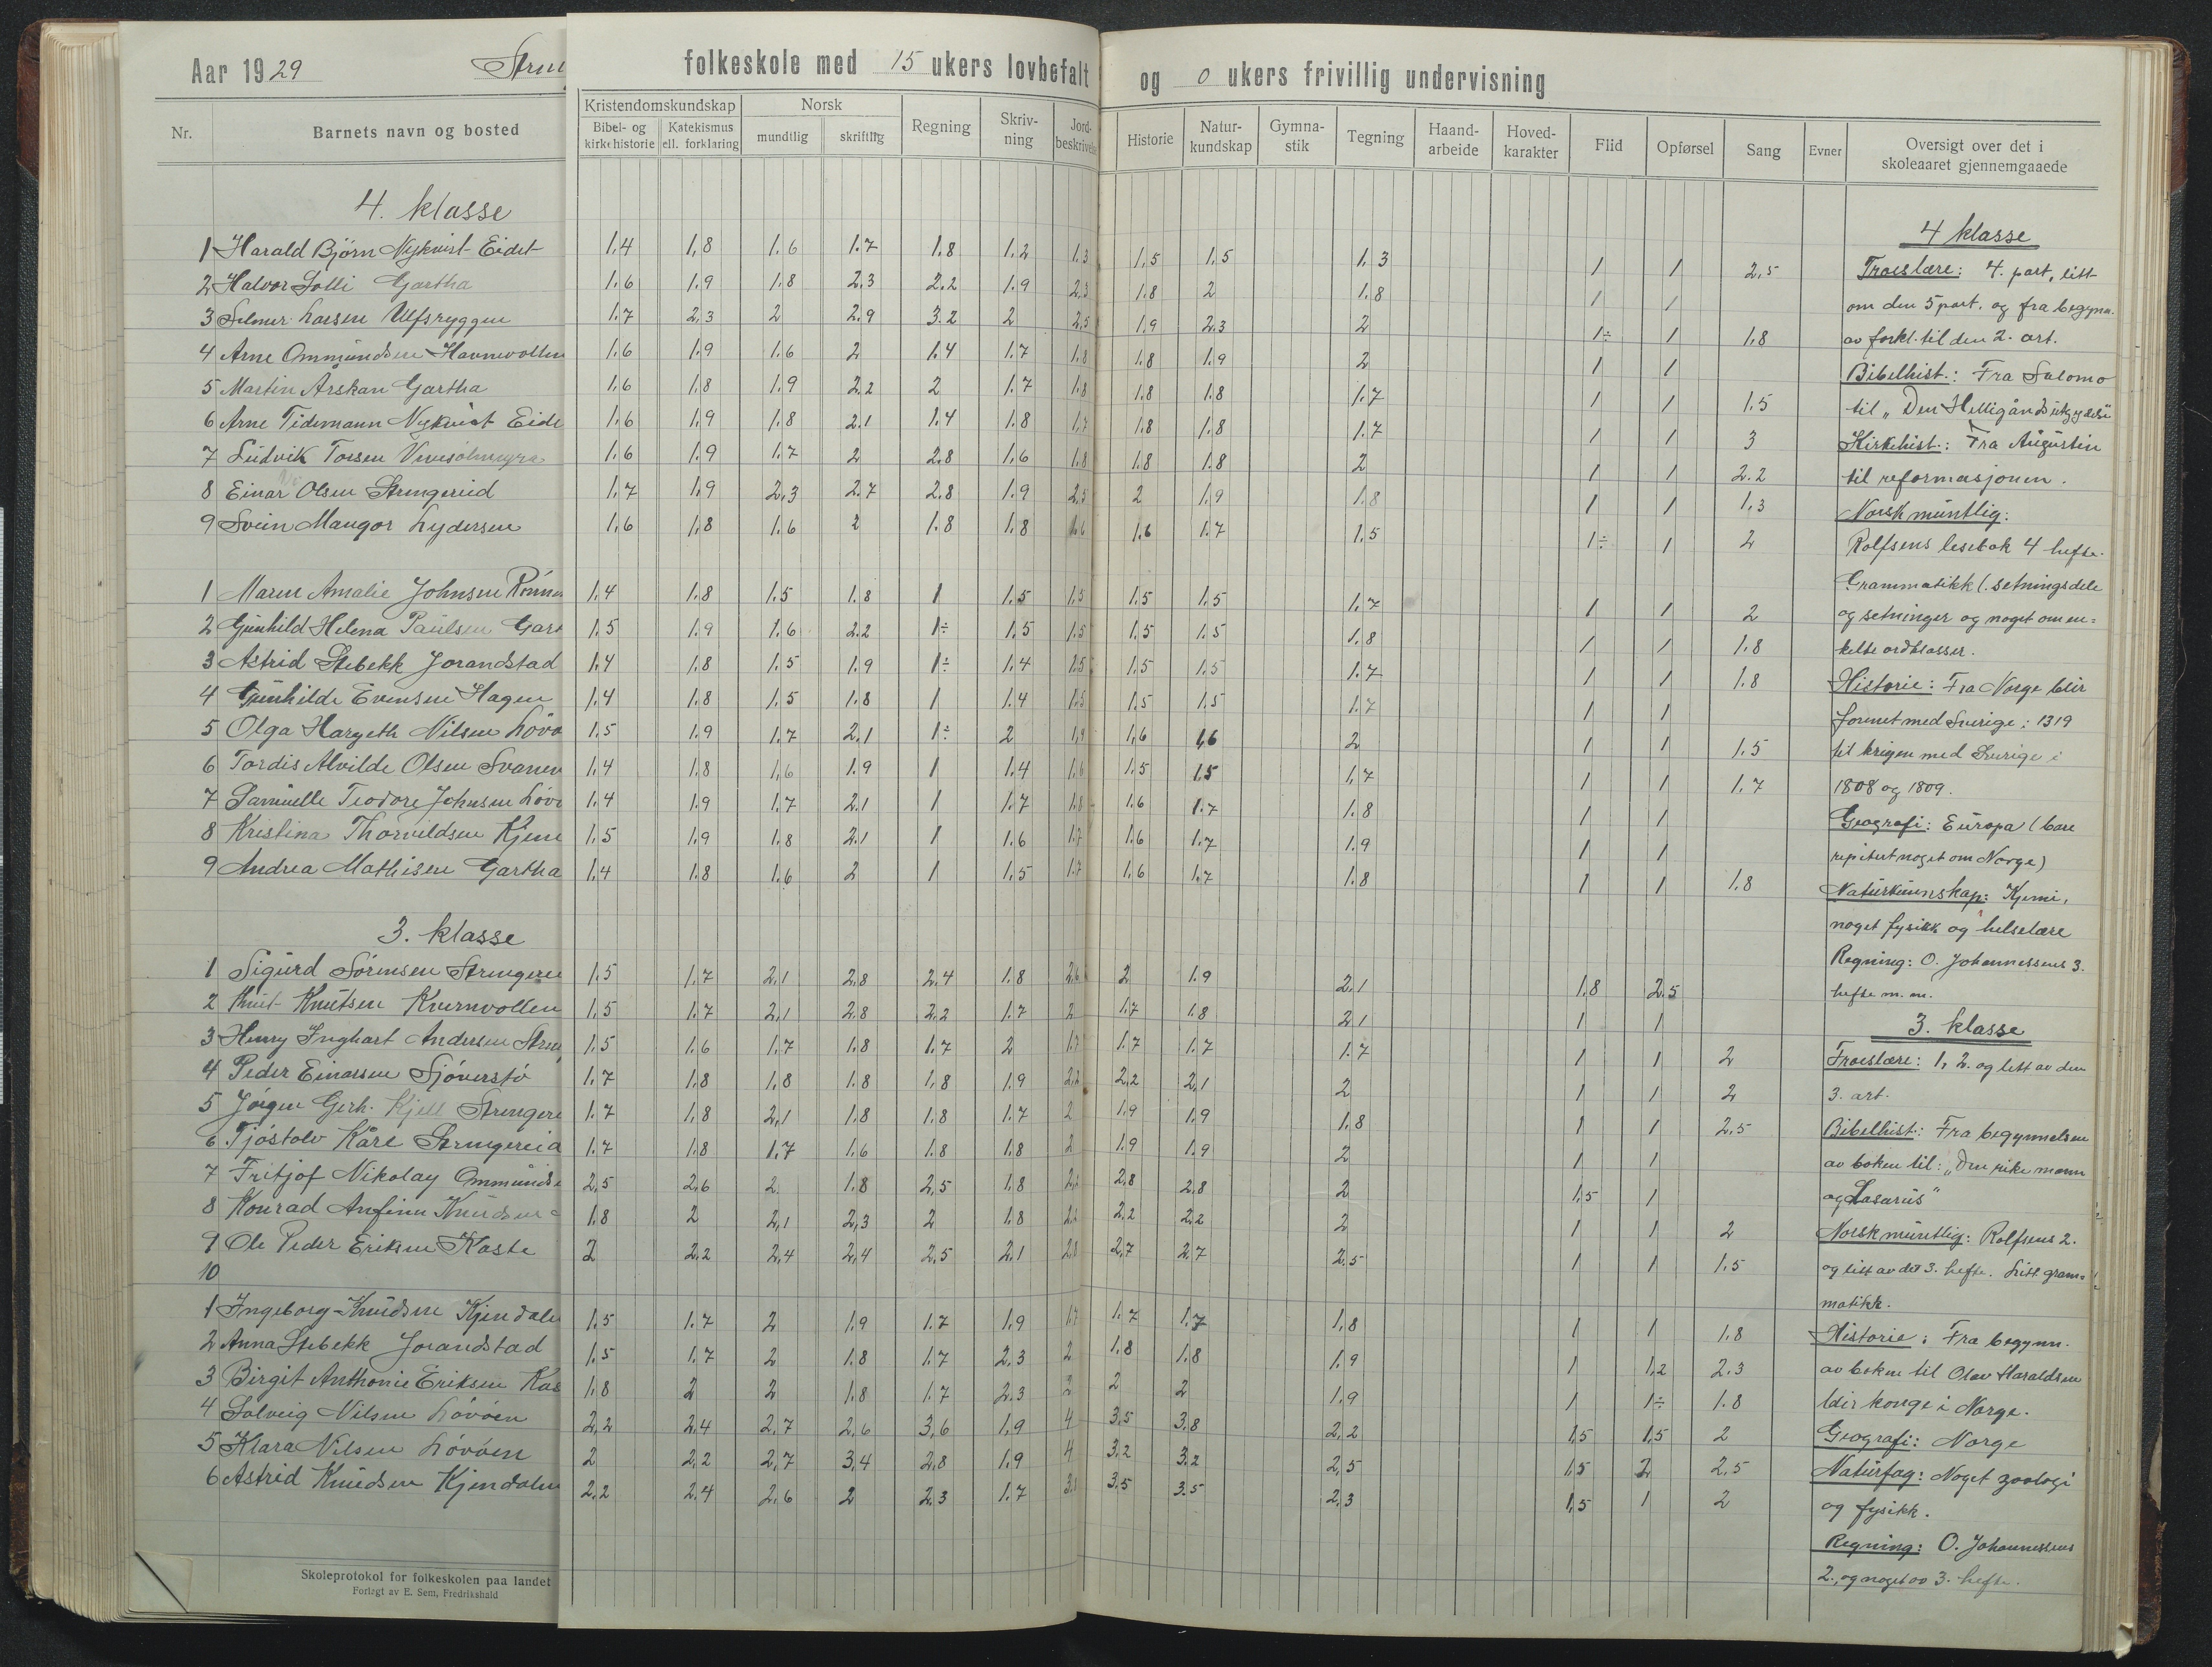 Aar 1929
folkeskole med 15 ukers lovbefalt og 0 ukers frivillig undervisning
Nr. Barnets navn og bosted Kristendomskundskap Bibel- og kirkehistorie Katekismus ell. forklaring Norsk mundtlig skriftlig Regning Skriv-ning Jord-beskrivelse Historie Natur-kundskap Gymna-stik Tegning Haand-arbeide Hoved-karakter Flid Opførsel Sang Evner Oversigt over det i skoleaaret gjennemgaaede
4. klasse
1 Harald Björn Nykvist Eidet 1.4 1.8 1.6 1.7 1.8 1.2 1.3 1.5 1.5 1.3 1 1 2.5
2 Halvor Solli Gartha 1.6 1.9 1.8 2.3 2.2 1.9 2.3 1.8 2 1.8 1 1
3 Selmer Larsen Ulfsryggen 1.7 2.3 2 2.9 3.2 2 2.5 1.9 2.3 2 1÷ 1 1.8
4 Arne Ommundsen Havnevollen 1.6 1.9 1.6 2 1.4 1.7 1.8 1.8 1.9 2 1 1
5 Martin Arskan Gartha 1.6 1.8 1.9 2.2 2 1.7 1.8 1.8 1.8 1.7 1 1 1.5
6 Arne Tidemann Nykvist Eide 1.6 1.9 1.8 2.1 1.4 1.8 1.7 1.8 1.8 1.7 1 1 3
7 Ludvik Torsen 1.6 1.9 1.7 2 2.8 1.6 1.8 1.8 1.8 2 1 1 2.2
8 Einar Olsen Strengereid 1.7 1.9 2.3 2.7 2.8 1.9 2.5 2 1.9 1.8 1 1 1.3
9 Svein Mangor Lydersen 1.6 1.8 1.6 2 1.8 1.8 1.6 1.6 1.7 1.5 1÷ 1 2
1 Maren Amalie Johnsen 1.4 1.8 1.5 1.8 1 1.5 1.5 1.5 1.5 1.7 1 1 2
2 Gunhild Helena Paulsen Gart 1.5 1.9 1.6 2.2 1÷ 1.5 1.5 1.5 1.5 1.8 1 1 1.8
3 Astrid Stebekk Jorandstad 1.4 1.8 1.5 1.9 1÷ 1.4 1.5 1.5 1.5 1.7 1 1 1.8
4 Gunhilde Evensen Hagen 1.4 1.8 1.5 1.8 1 1.4 1.5 1.5 1.5 1.7 1 1
5 Olga Hargeth Nilsen Lövö 1.5 1.9 1.7 2.1 1÷ 2 1.9 1.6 1.6 2 1 1 1.5
6 Tordis Alvilde Olsen Svanev 1.4 1.8 1.6 1.9 1 1.4 1.6 1.5 1.5 1.7 1 1 1.7
7 Samuelle Teodore Johnsen Löv 1.4 1.9 1.7 2.1 1 1.7 1.8 1.6 1.7 1.8 1 1
8 Kristina Thorvildsen Kjen 1.5 1.9 1.8 2.1 1 1.6 1.7 1.6 1.7 1.9 1 1
9 Andrea Mathisen Gartha 1.4 1.8 1.6 2 1 1.5 1.7 1.6 1.7 1.8 1 1 1.8
3. klasse
1 Sigurd Sörensen Strengerei 1.5 1.7 2.1 2.8 2.4 1.8 2.6 2 1.9 2.1 1.8 2.5
2 Knut Knutsen Kvernvollen 1.5 1.7 2.1 2.8 2.2 1.7 2 1.7 1.8 2.1 1 1
3 Henry Inghart Andersen Stren 1.5 1.6 1.7 1.8 1.7 2 1.7 1.7 1.7 1.7 1 1 2
4 Peder Einarsen Sjöverstö 1.7 1.8 1.8 1.8 1.8 1.9 2.2 2.2 2.1 2 1 1 2
5 Jörgen Gerh. Kjell Strengere 1.7 1.8 2.1 1.8 1.8 1.7 2 1.9 1.9 1.8 1 1 2.5
6 Tjöstolv Kåre Strengereid 1.7 1.8 1.7 1.6 1.8 1.8 2 1.9 1.9 2 1 1
7 Fritjof Nikolay Ommunds 2.5 2.6 2 1.8 2.5 1.8 2.2 2.8 2.8 2 1.5 1
8 Konrad Anfinn Knudsen 1.8 2 2.1 2.3 2 1.8 2.2 2.2 2.2 2 1 1 2
9 Ole Peder Eriksen Kaste 2 2.2 2.4 2.4 2.5 2.1 2.8 2.7 2.7 2.5 1 1 1.5
10
1 Ingeborg Knudsen Kjendalen 1.5 1.7 2 1.9 1.7 1.9 1.7 1.7 1.7 1.8 1 1 1.8
2 Anna Stebekk Jorandstad 1.5 1.7 2 1.8 1.7 2.3 2 1.8 1.8 1.9 1 1.2 2.3
3 Birgit Anthonie Eriksen Kas 1.8 2 2 1.8 1.7 2.3 2 2 2 1.9 1 1÷ 1.8
4 Solveig Nilsen Lövöen 2.2 2.4 2.7 2.6 3.6 1.9 4 3.5 3.8 2.2 1.5 1.5 2
5 Klara Nilsen Lövöen 2 2.2 2.7 3.4 2.8 1.9 4 3.2 3.2 2.5 1.5 2 2.5
6 Astrid Knudsen Kjendalen 2.2 2.4 2.6 2 2.3 1.7 3.5 3.5 2.3 1.5 1 2
Skoleprotokol for folkeskolen paa landet
Forlagt av E. Sem, Fredrikshald
4 klasse
Troeslære: 4. part, litt
om den 5 part. og fra begynn.
av forkl. til den 2. art.
Bibelhist.: Fra Salomo
til „Den Helligånds utgydelse
Kirkehist.: Fra Augustin
til reformasjonen.
Norsk muntlig:
Rolfsens lesebok 4 hefte.
Grammatikk (setningsdele
og setninger og noget om en=
kelte ordklasser.
Historie: Fra Norge blir
forenet med Sverige: 1319
til krigen med Sverige i
1808 og 1809.
Geografi: Europa (bare
repitert noget om Norge)
Naturkunnskap: Kjemi,
noget fysikk og helselære
Regning: O. Johannessens 3.
hefte m.m.
3. klasse
Troeslære: 1, 2. og litt av den
3. art.
Bibelhist.: Fra begynnelsen
av boken til: „Den rike mann
og Lasarus"
Norsk muntlig: Rolfsens 2.
og litt av det 3. hefte. Litt gram=
matikk.
Historie: Fra begynn.
av boken til Olav Haraldsen
blir konge i Norge.
Geografi: Norge
Naturfag: Noget zoologi
og fysikk.
Regning: O. Johannessens
2., og noget av 3. hefte.